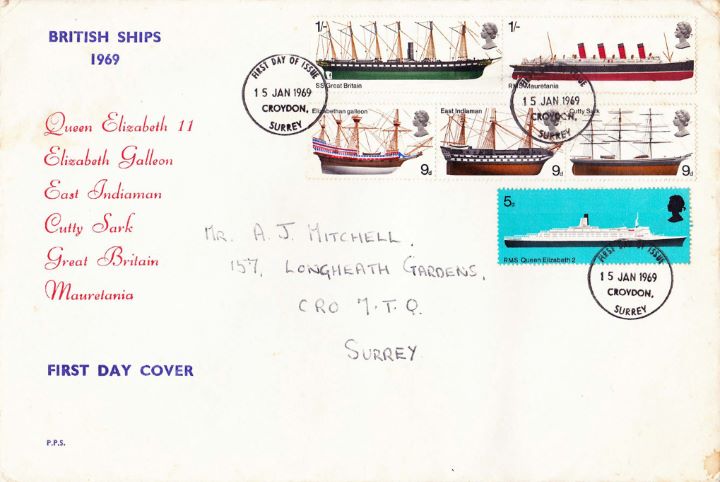 BRITISH SHIPS
1969
Queen Elizabeth 11
Elizabeth Galleon
East Indiaman
Cutty Sark
Great Britain
Mauretania
FIRST DAY COVER
P.P.S.
1/-
SS Great Britain
1/-
RMS Mauretania
Elizabethan galleon
9d
East Indiaman
9d
Cutty Sark
9d
5d
RMS Queen Elizabeth 2
FIRST DAY OF ISSUE
15 JAN 1969
CROYDON,
SURREY
FIRST DAY OF ISSUE
15 JAN 1969
CROYDON,
SURREY
FIRST DAY OF ISSUE
15 JAN 1969
CROYDON,
SURREY
MR. A. J. MITCHELL.
157, LONGHEATH GARDENS,
CRO 7.T.Q.
SURREY